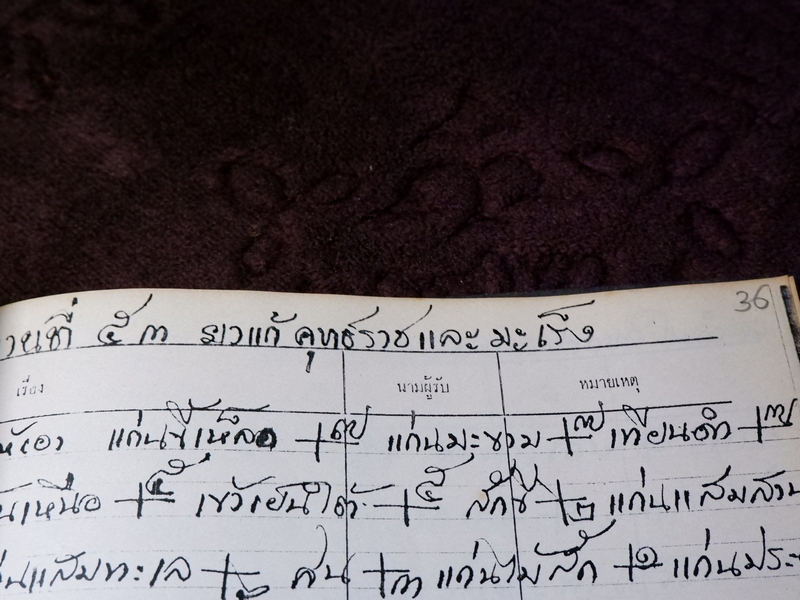 36
านที่ ๕๓ ยาแก้คุทธราชและมะเร็ง
เรื่อง นามผู้รับ หมายเหตุ
ห้เอา แก่นขี้เหล็ก แก่นมะขาม เทียนดำ
เหนือ ๕ เขาัเย็นใต้ ๕ สักขี ๒ แก่นแสมสาน
นแสมทะเล สน ๓ แก่นไม้สัก ๑ แก่นประ